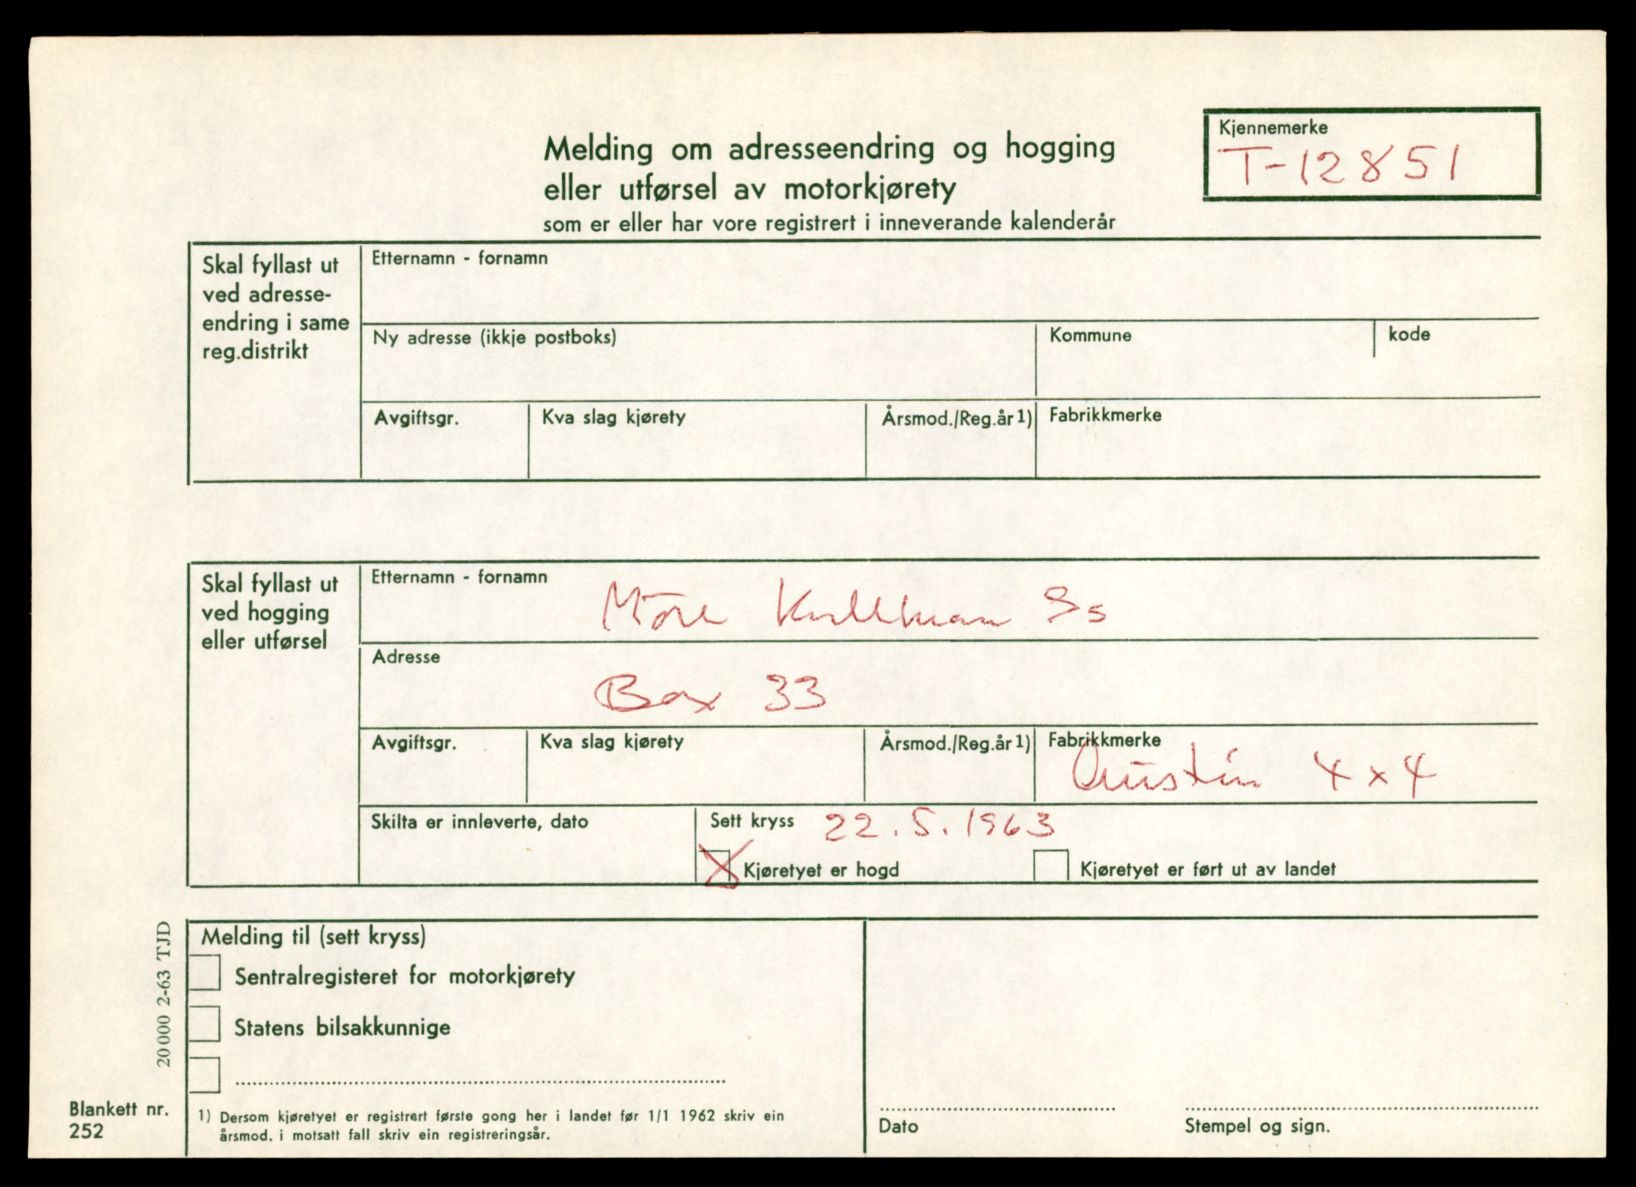 Kjennemerke
T-12851
Melding om adresseendring og hogging
eller utførsel av motorkjørety
som er eller har vore registrert i inneverande kalenderår
Skal fyllast ut
ved adresse-
endring i same
reg.distrikt
Etternamn - fornamn
Ny adresse (ikkje postboks)
Kommune
kode
Avgiftsgr.
Kva slag kjørety
Årsmod./Reg.år 1)
Fabrikkmerke
Skal fyllast ut
ved hogging
eller utførsel
Etternamn - fornamn
Adresse
Box 33
Avgiftsgr.
Kva slag kjørety
Årsmod./Reg.år 1)
Fabrikkmerke
Austin 4x4
Skilta er innleverte, dato
Sett kryss 22.5.1963
Kjøretyet er hogd
Kjøretyet er ført ut av landet
Melding til (sett kryss)
Sentralregisteret for motorkjørety
Statens bilsakkunnige
1) Dersom kjøretyet er registrert første gong her i landet før 1/1 1962 skriv ein
årsmod. i motsatt fall skriv ein registreringsår.
Dato
Stempel og sign.
20000 2-63 TJD
Blankett nr.
252